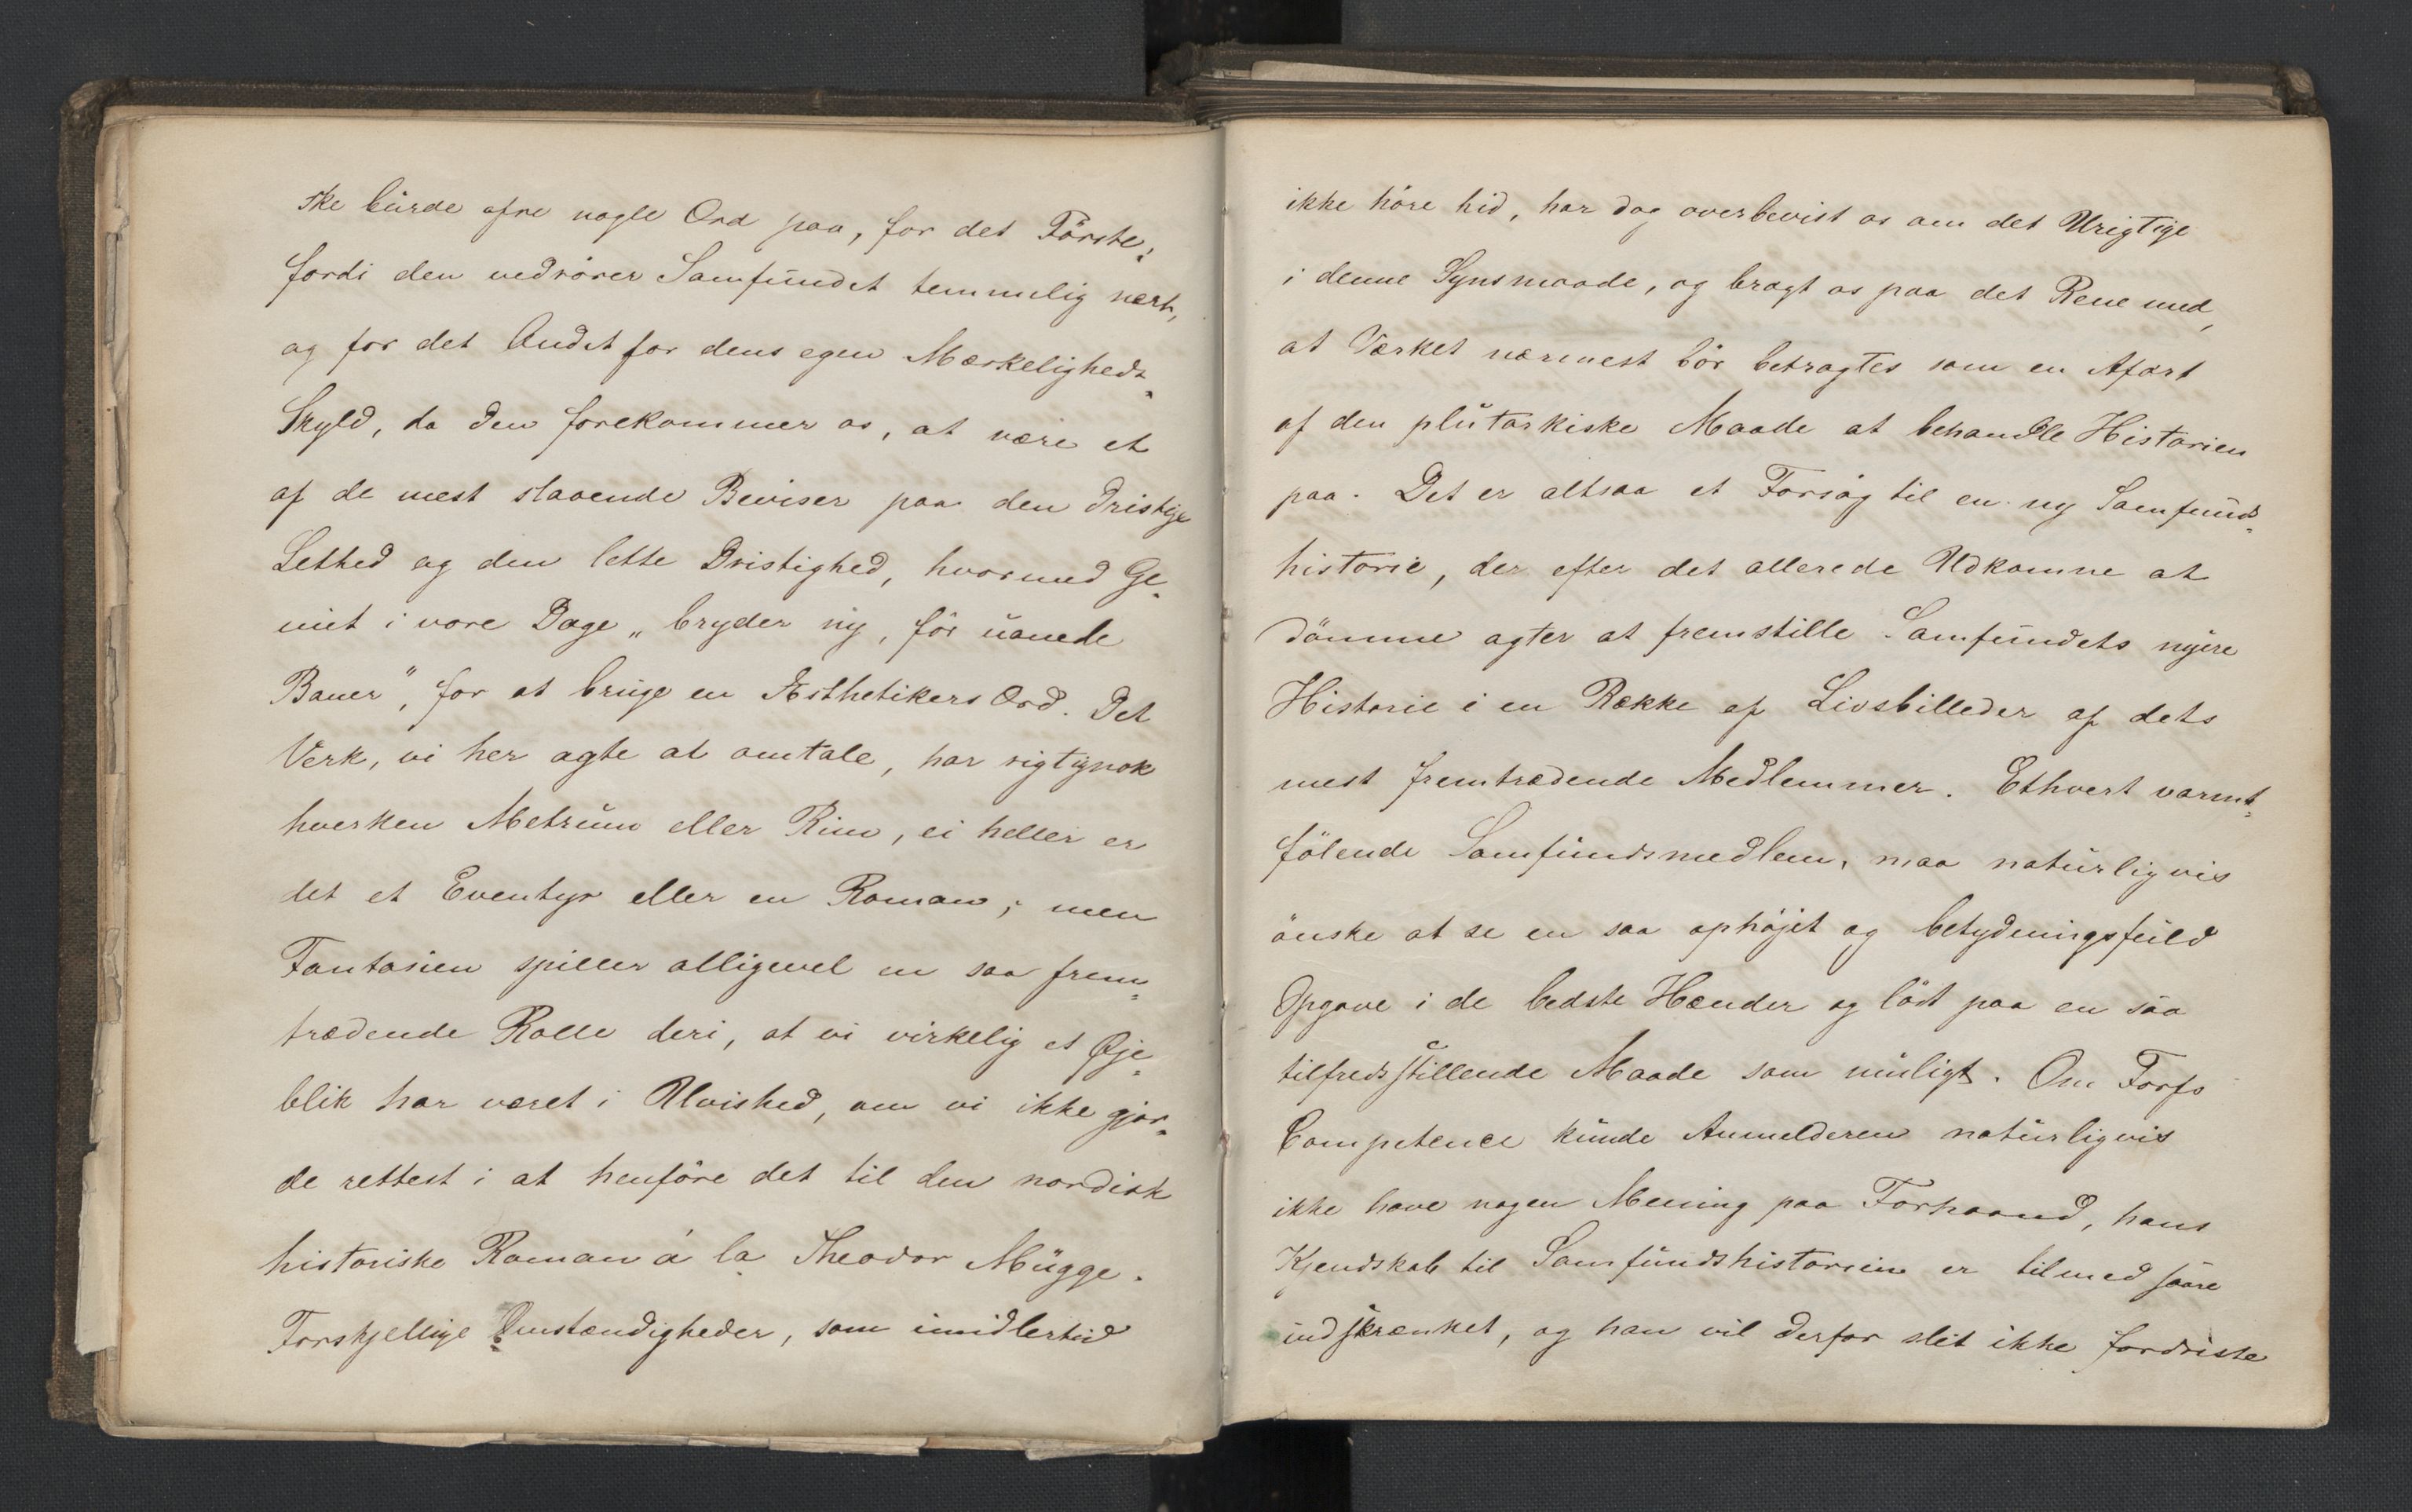 ske burde ofre nogle Ord paa, for det Förste,
fordi den vedrörer Samfundet temmelig nært,
og for det Andet for dens egen Mærkeligheds
Skyld, da den forekommer os, at være et
af de mest slaaende Beviser paa den dristige
Lethed og den lette Dristighed, hvormed Ge-
niet i vore Dage „bryder ny, för uanede
Baner", for at bruge en Æsthetikers Ord. Det
Verk, vi her agte at omtale, har rigtignok
hverken Metrum eller Rim, ei heller er
det et Eventyr eller en Roman; men
Fantasien spiller alligevel en saa frem-
trædende Rolle deri, at vi virkelig et Øje-
blik har været i Uvished, om vi ikke gjor-
de rettest i at henföre det til den nordisk
historiske Roman á la Theodor Mügge.
Forskjellige Omstændigheder, som imidlertid
ikke höre hid, har dog overbevist os om det Urigtige
i denne Synsmaade, og bragt os paa det Rene med,
at Værket nærmest bör betragtes som en Afart
af den plutarkiske Maade at behandle Historien
paa. Det er altsaa et Forsög til en ny Samfunds-
historie, der efter det allerede Udkomne at
dömme agter at fremstille Samfundets nyere
Historie i en Række af Livsbilleder af dets
mest fremtrædende Medlemmer. Ethvert varmt-
fölende Samfundsmedlem, maa naturligvis
önske at se en saa ophöjet og betydningsfuld
Opgave i de bedste Hænder og löst paa en saa
tilfredsstillende Maade som muligt. Om Forfs
Competence kunde Anmelderen naturligvis
ikke have nogen Mening paa Forhaand, hans
Kjendskab til Samfundshistorien er tilmed saare
indskrænket, og han vil derfor slet ikke fordriste